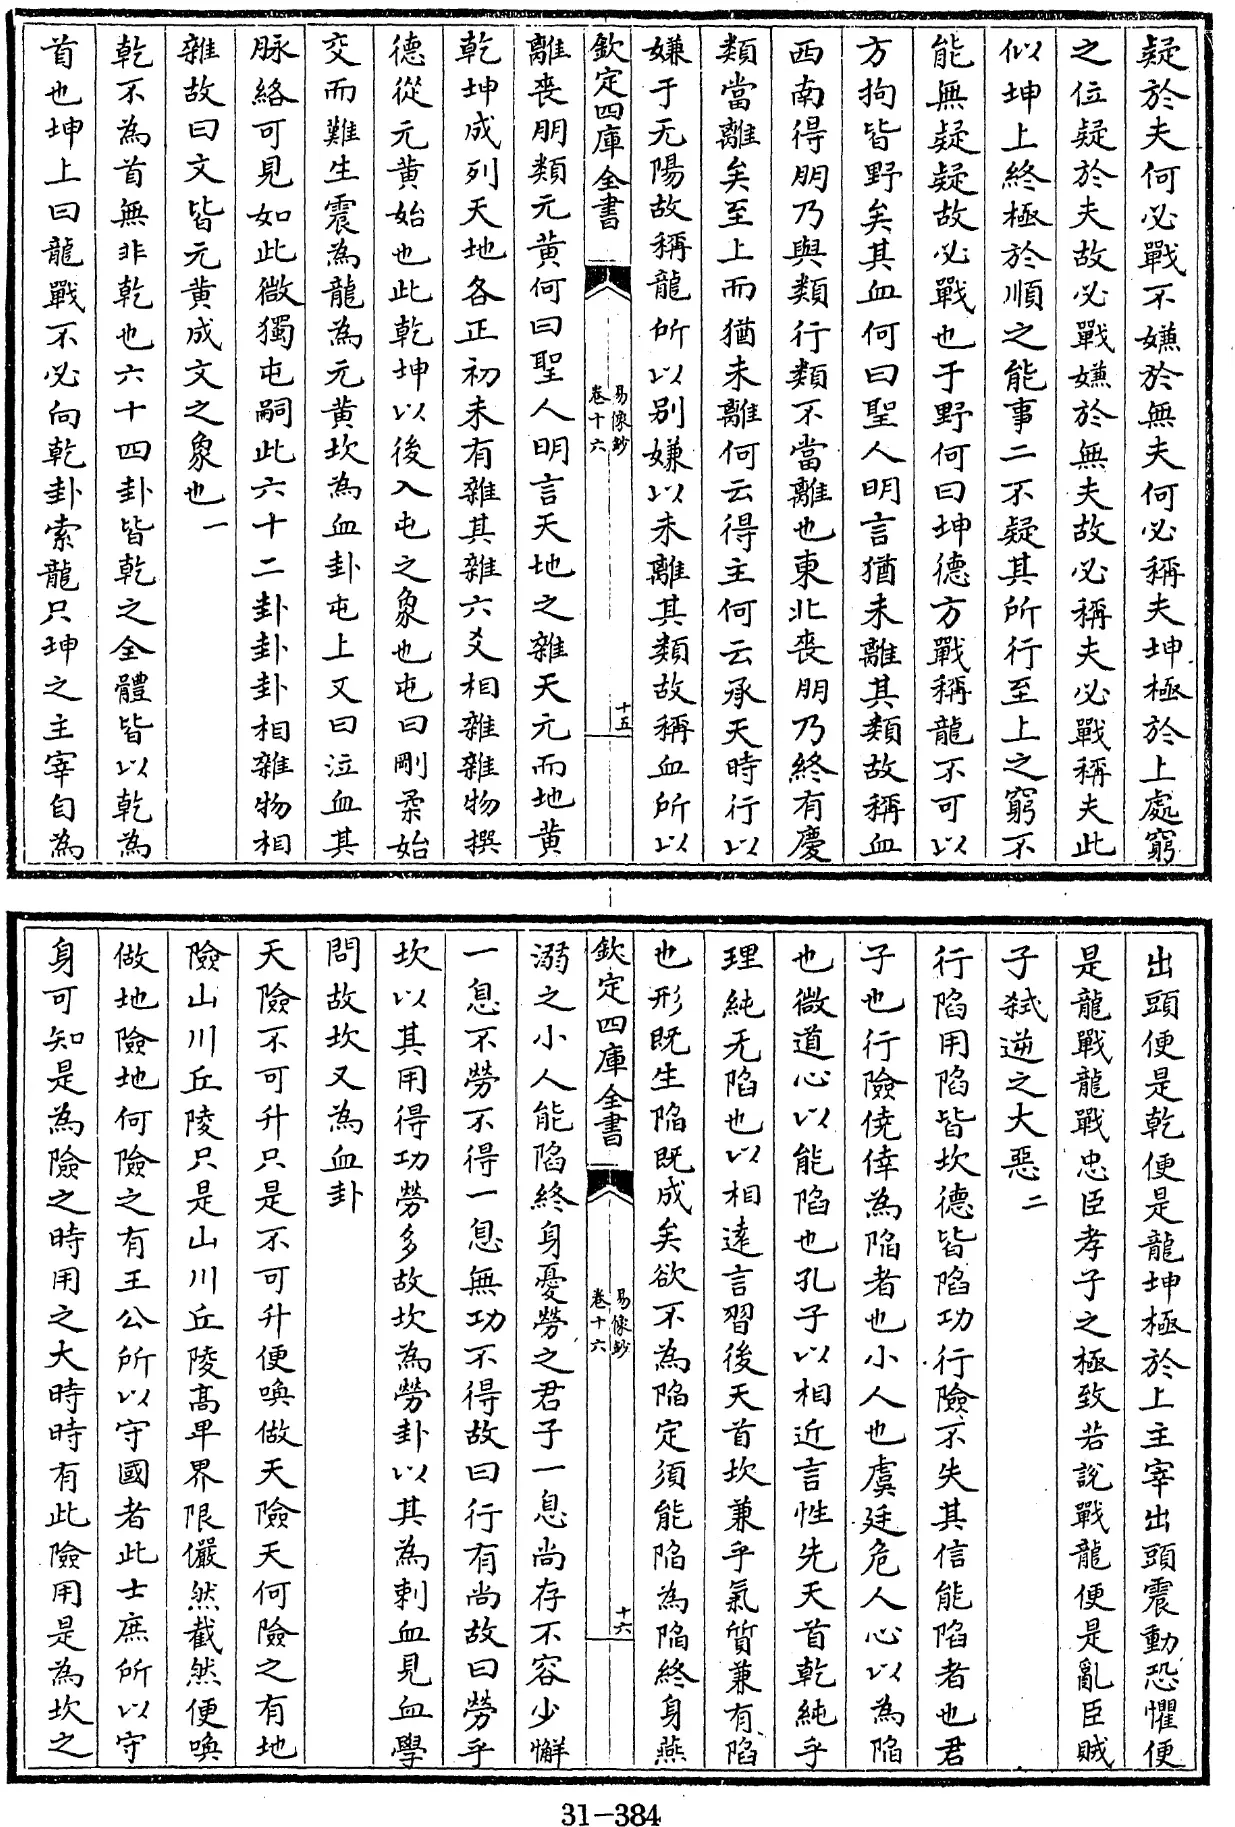 疑於夫何必戰不嫌於無夫何必稱夫坤極於上處窮
之位疑於夫故必戰嫌於無夫故必稱夫必戰稱夫此
似坤上終極於順之能事二不疑其所行至上之窮不
能無疑疑故必戰也于野何曰坤德方戰稱龍不可以
方拘皆野矣其血何曰聖人明言猶未離其類故稱血
西南得朋乃與類行類不當離也東北喪朋乃終有慶
類當離矣至上而猶未離何云得主何云承天時行以
嫌于无陽故稱龍所以别嫌以未離其類故稱血所以
欽定四庫全書
易像鈔
卷十六
十五
離喪朋類元黄何曰聖人明言天地之雜天元而地黄
乾坤成列天地各正初未有雜其雜六爻相雜雜物撰
德從元黄始也此乾坤以後入屯之象也屯曰剛柔始
交而難生震為龍為元黄坎為血卦屯上又曰泣血其
脉絡可見如此微獨屯嗣此六十二卦卦卦相雜物相
雜故曰文皆元黄成文之象也一
乾不為首無非乾也六十四卦皆乾之全體皆以乾為
首也坤上曰龍戰不必向乾卦索龍只坤之主宰自為
出頭便是乾便是龍坤極於上主宰出頭震動恐懼便
是龍戰龍戰忠臣孝子之極致若說戰龍便是亂臣賊
子弑逆之大惡二
行陷用陷皆坎德皆陷功行險不失其信能陷者也君
子也行險僥倖為陷者也小人也虞廷危人心以為陷
也微道心以能陷也孔子以相近言性先天首乾純乎
理純无陷也以相逺言習後天首坎兼乎氣質兼有陷
也形既生陷既成矣欲不為陷定須能陷為陷終身燕
欽定四庫全書
易像鈔
卷十六
十六
溺之小人能陷終身憂勞之君子一息尚存不容少懈
一息不勞不得一息無功不得故曰行有尚故曰勞乎
坎以其用得功勞多故坎為勞卦以其為刺血見血學
問故坎又為血卦
天險不可升只是不可升便喚做天險天何險之有地
險山川丘陵只是山川丘陵高卑界限儼然截然便喚
做地險地何險之有王公所以守國者此士庶所以守
身可知是為險之時用之大時時有此險用是為坎之
31-384